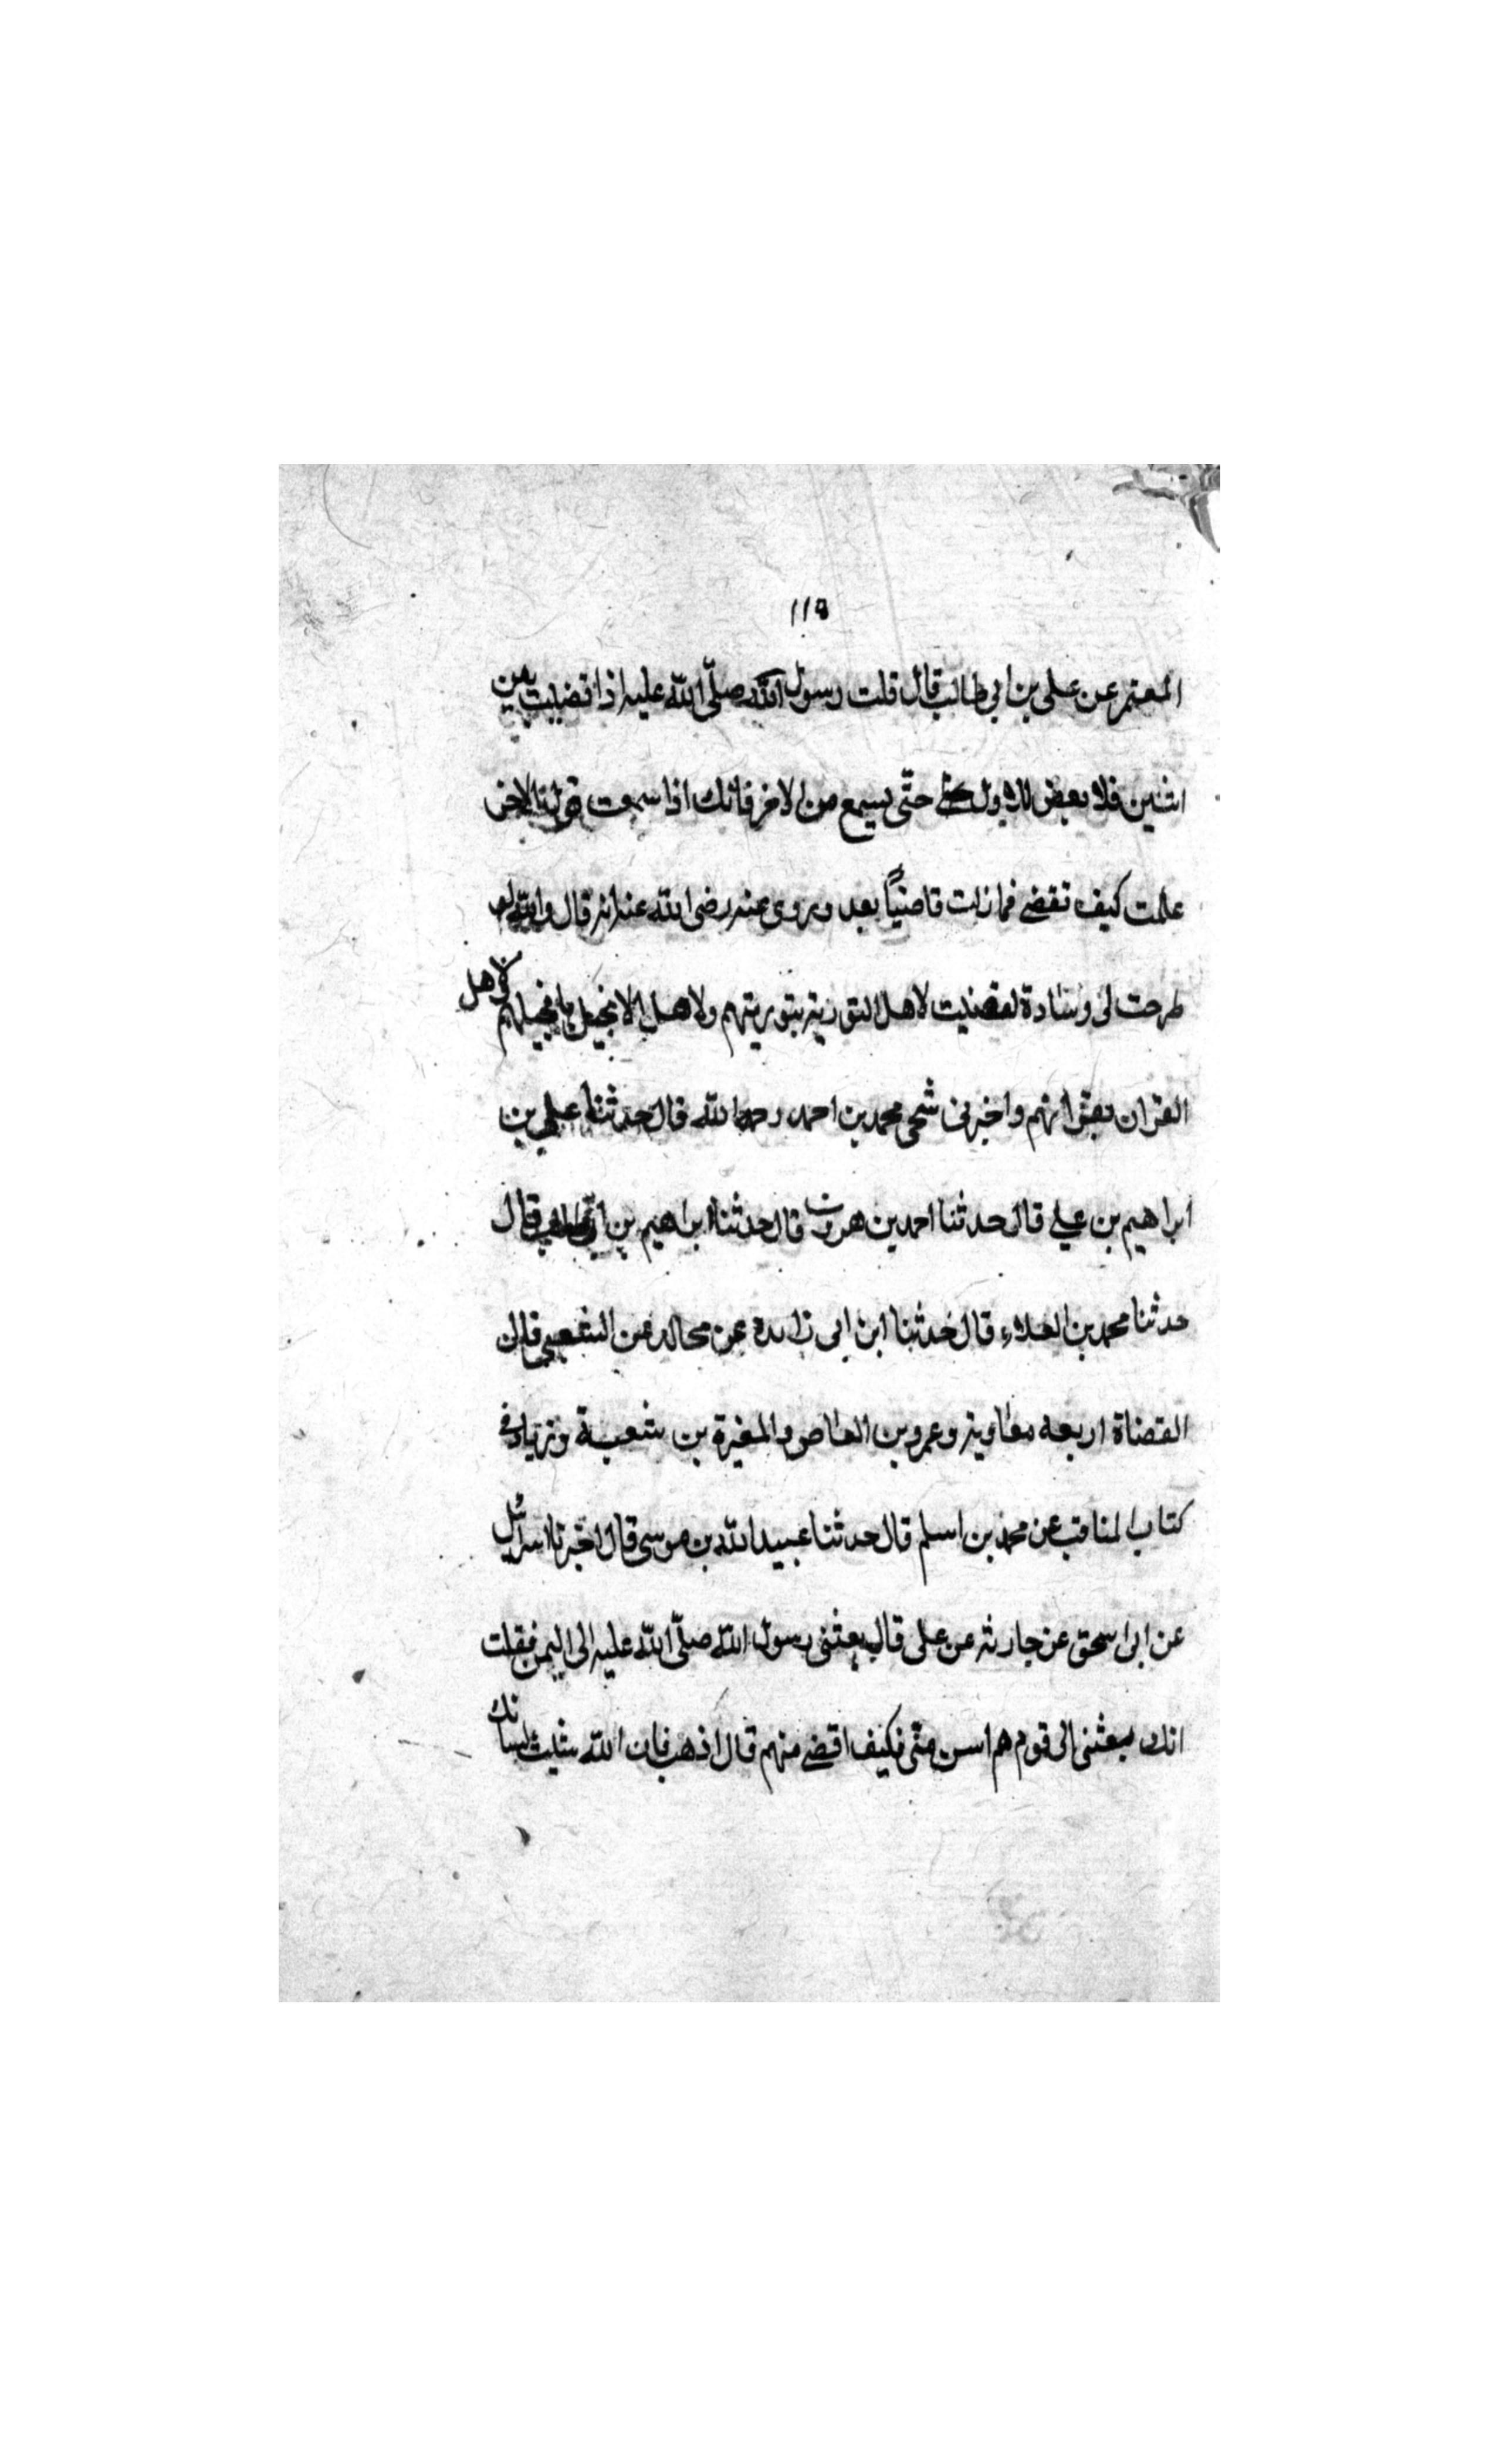 ١١٥
المعتمر عن على بن ابي طالب قال قلت رسول الله صلّى الله عليه اذا قضيت بين
اثنين فلا بعض للاول حتّى يسمع من الاخر فانك اذا سمعت الاخر
علمت كيف تقضى فما زلت قاضياً بعد ويروى عنه رضى الله عنه انه قال والله لو
طرحت لى وسادة لقضيت لاهل التورية بتوريتهم ولاهل الانجيل بانجيلهم ولاهل
القران بقرانهم واخبرنى محمد بن احمد رحمه الله قال حدثنا على بن
ابراهيم بن على قال حدثنا احمد بن هرون قال حدثنا ابراهيم بن قال
حدثنا محمد بن العلاء قال حدثنا ابن ابى زايدة عن مجالد عن الشعبى قال
القضاة اربعه معاوية وعمرو بن العاص والمغيرة بن شعبة وزياد فى
كتاب المناقب عن محمد بن اسلم قال حدثنا عبيد الله بن موسى قال اخبرنا اسرائيل
عن ابى اسحق عن حارثه عن على قال بعثنى رسول الله صلّى الله عليه الى اليمن فقلت
انك مبعثنى الى قوم هم اسن منّى فكيف اقضى منهم قال اذهب فان الله يثبت لسانك